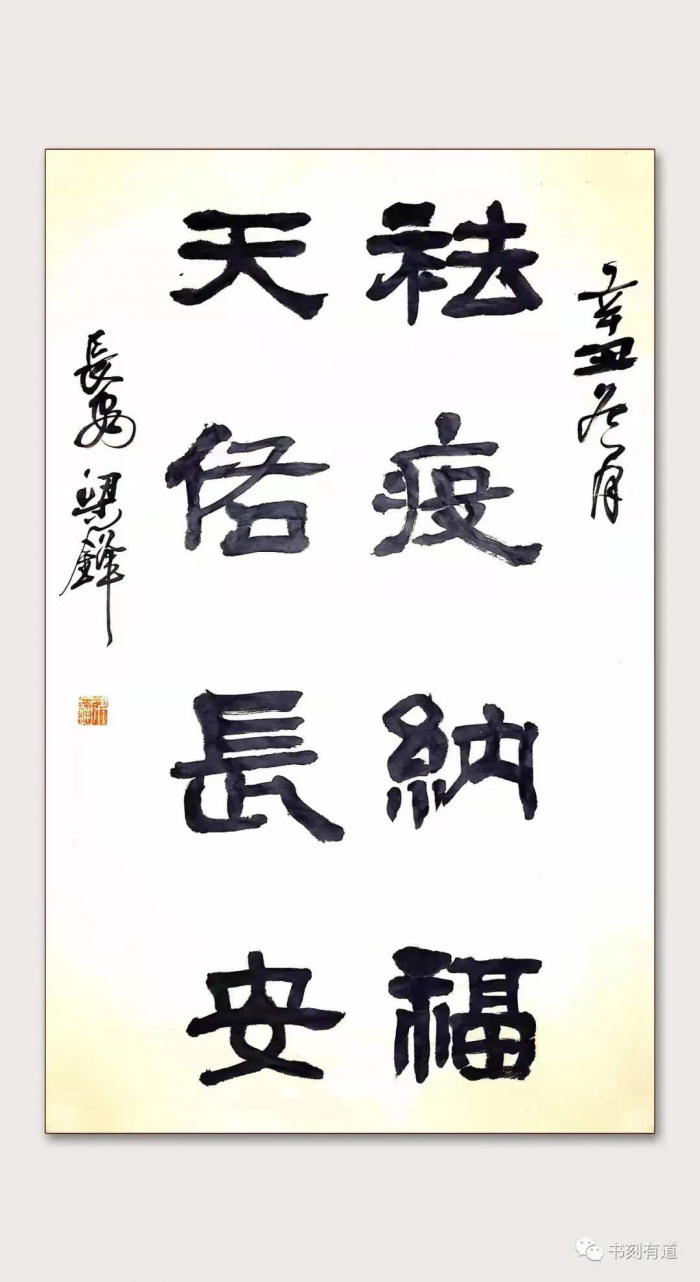 辛丑冬月
祛疫納福
天佑長安
長安梁鋒
书刻有道